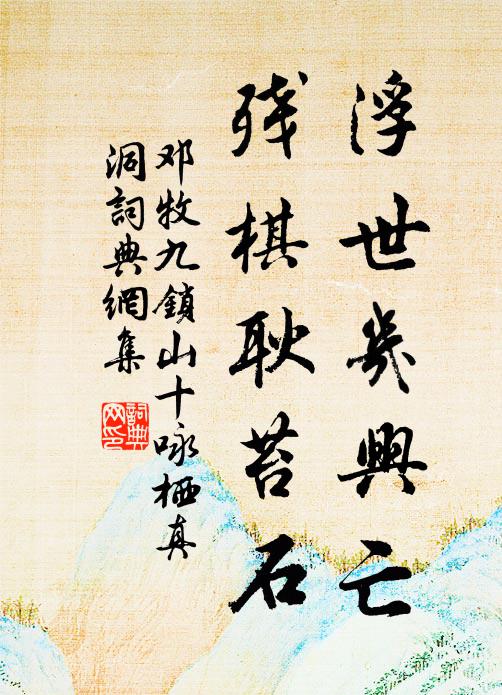 浮世幾興亡
残棋耿苔石
邓牧九鎖山十咏栖真
洞詞典網集
詞典网印